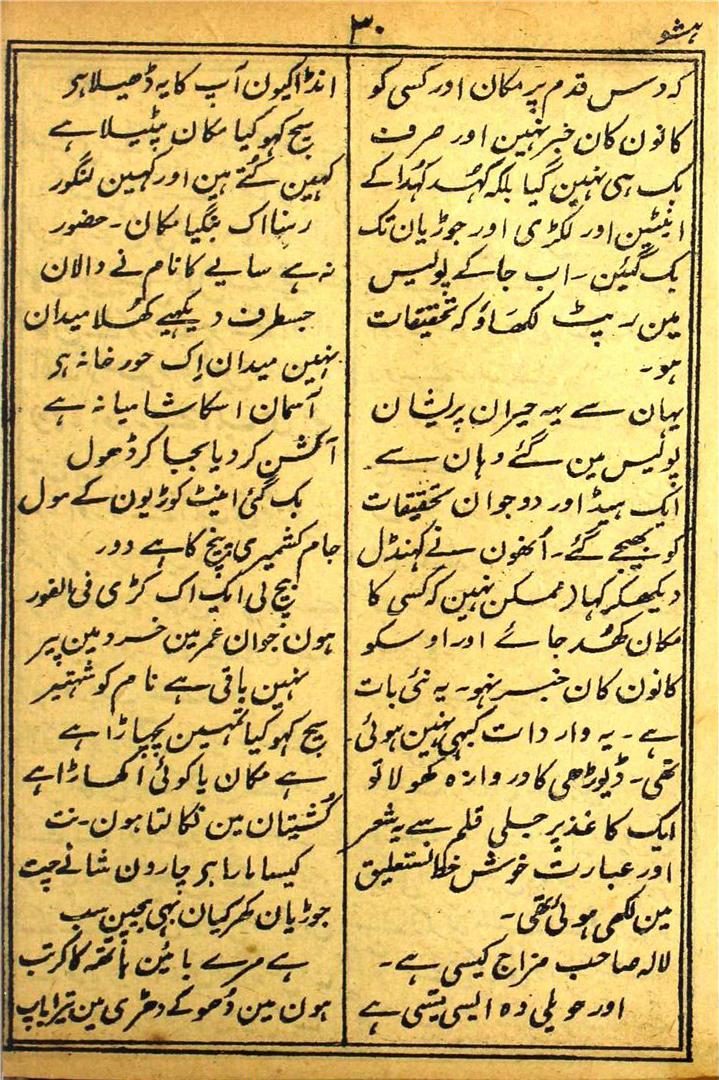 ہشو
۳۰
کہ دس قدم پر مکان اور کسی کو
کانون کان خبر نہین اور صرف
بک ہی نہین گیا بلکہ کھد کھدا کے
اینٹین اور لکڑی اور جوڑیان تک
بک گیئن ۔ اب جا کے پولیس
مین رپٹ لکھاؤ کہ تحقیقات
ہو۔
یہان سے یہ حیران پریشان
پولیس مین گئے وہان سے
ایک ہیڈ اور دو جوان تحقیقات
کو بھیجے گئے۔ اُنھون نے کھنڈل
دیکھکر کہا (ممکن نہین کہ کسی کا
مکان کھُد جائے اور اوسکو
کانون کان خبر نہو۔ یہ نئی بات
ہے۔ یہ واردات کبھی نہین ہوئی
تھی۔ ڈیوڑھی کا دروازہ کھولا تو
ایک کاغذ پر جلی قلم سے یہ شعر
اور عبارت خوش خط نستعلیق
مین لکھی ہوئی تھی۔
لالہ صاحب مزاج کیسی ہے۔
اور حویلی وہ ایسی تیسی ہے
انڈا کیون آپ کا یہ ڈھیلا ہر
سچ کہو کیا مکان پٹیلا ہے
کہین کُتے ہین اور کہین لنگور
رمنا اک بنگیا مکان۔ حضور
نہ ہے سایے کا نام نے دالان
جسطرف دیکھیے کھُلا میدان
نہین میدان اِک حور خانہ ہر
آسمان اسکا شامیانہ ہے
آکشن کر دیا بجا کر ڈھول
بک گئی اینٹ کوڑیون کے مول
جام کشمیری پنچ کا ہے دور
بیچ لی ایک اک کڑی فی الفور
ہون جوان عمر مین خرد مین پیر
نہین باقی ہے نام کو شہتیر
سچ کہو کیا تمہین پچھاڑا ہے
ہے مکان یا کوئی اکھاڑا ہے
کُشتیان مین نکالتا ہون۔ نت
کیسا مارا ہر چارون شانے چت
جوڑیان کھرکیان بھی بیچین سب
ہے مرے بائین ہاتھہ کا کرتب
ہون مین دُھوکے دھڑی مین تیرا باپ